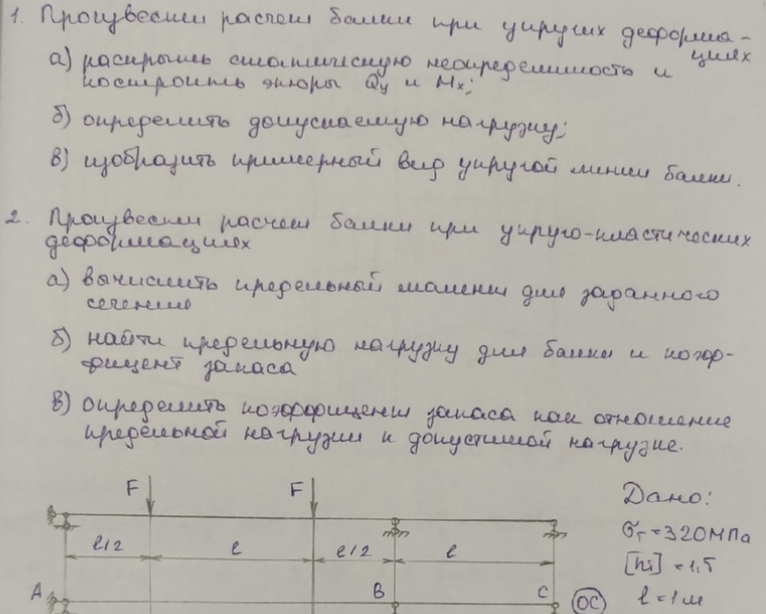 1. Произвести расчет балки при упругих деформа-
циях
а) раскрыть статическую неопределимость и
построить эпюры Qy и Mx;
б) определить допускаемую нагрузку;
в) изобразить примерный вид упругой линии балки.
2. Произвести расчет балки при упруго-пластических
деформациях
а) вычислить предельный момент для заданного
сечения
б) найти предельную нагрузку для балки и коэф-
фицент запаса
в) определить коэффициент запаса как отношение
предельной нагрузки к допустимой нагрузке.
F F
Дано:
σт = 320МПа
l/2 l l/2 l
[hт] = 1,5
A B C OC
l = 1м